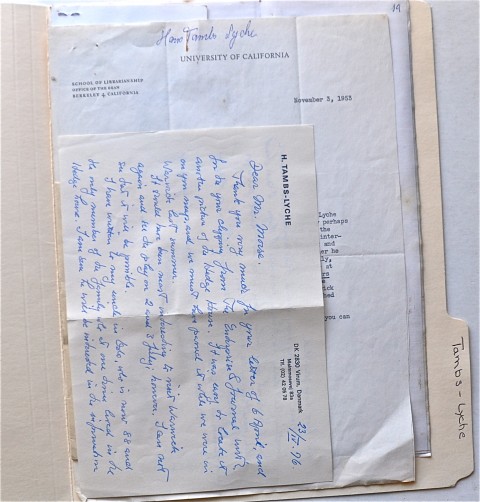 19
Hans Tambs Lyche
UNIVERSITY OF CALIFORNIA
SCHOOL OF LIBRARIANSHIP
OFFICE OF THE DEAN
BERKELEY 4, CALIFORNIA
November 3, 1953
Lyche
perhaps
the
inter-
and
er he
ly,
at
rs
ick
hed
you can
H. TAMBS-LYCHE
DK 2830 Virum, Danmark
Tlf. (02) 42 09 78
Dear Mr. Morse.
Thank you very much for your letter of 6 April, and
for the your clipping from The Enterprise & Journal with
another picture of the Hodge House. It was easy to locate it
on your map, and we must have passed it when we were in
Warwick last summer.
It would have been most interesting to visit Warwick
again and see the play on 2 and 3 July; however I am not
sure that it will be possible.
I have written to my uncle in Oslo, who is now 88 and
the only member of the family who at one time lived in the
Hodge house. I am sure he will be interested in the information
Tambs - Lyche